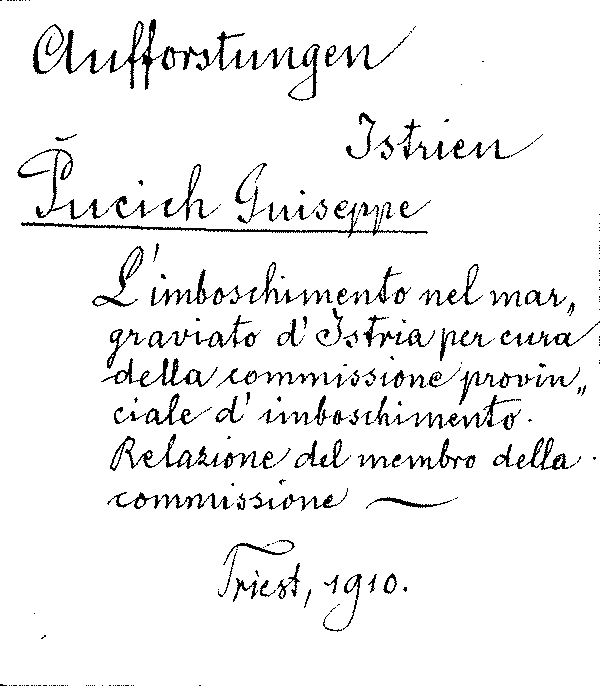 Aufforstungen
Istrien
Pucich Guiseppe
L'imboschimento nel mar„
graviato d'Istria per cura
della commissione provin„
ciale d'imboschimento.
Relazione del membro della
commissione —
Triest, 1910.